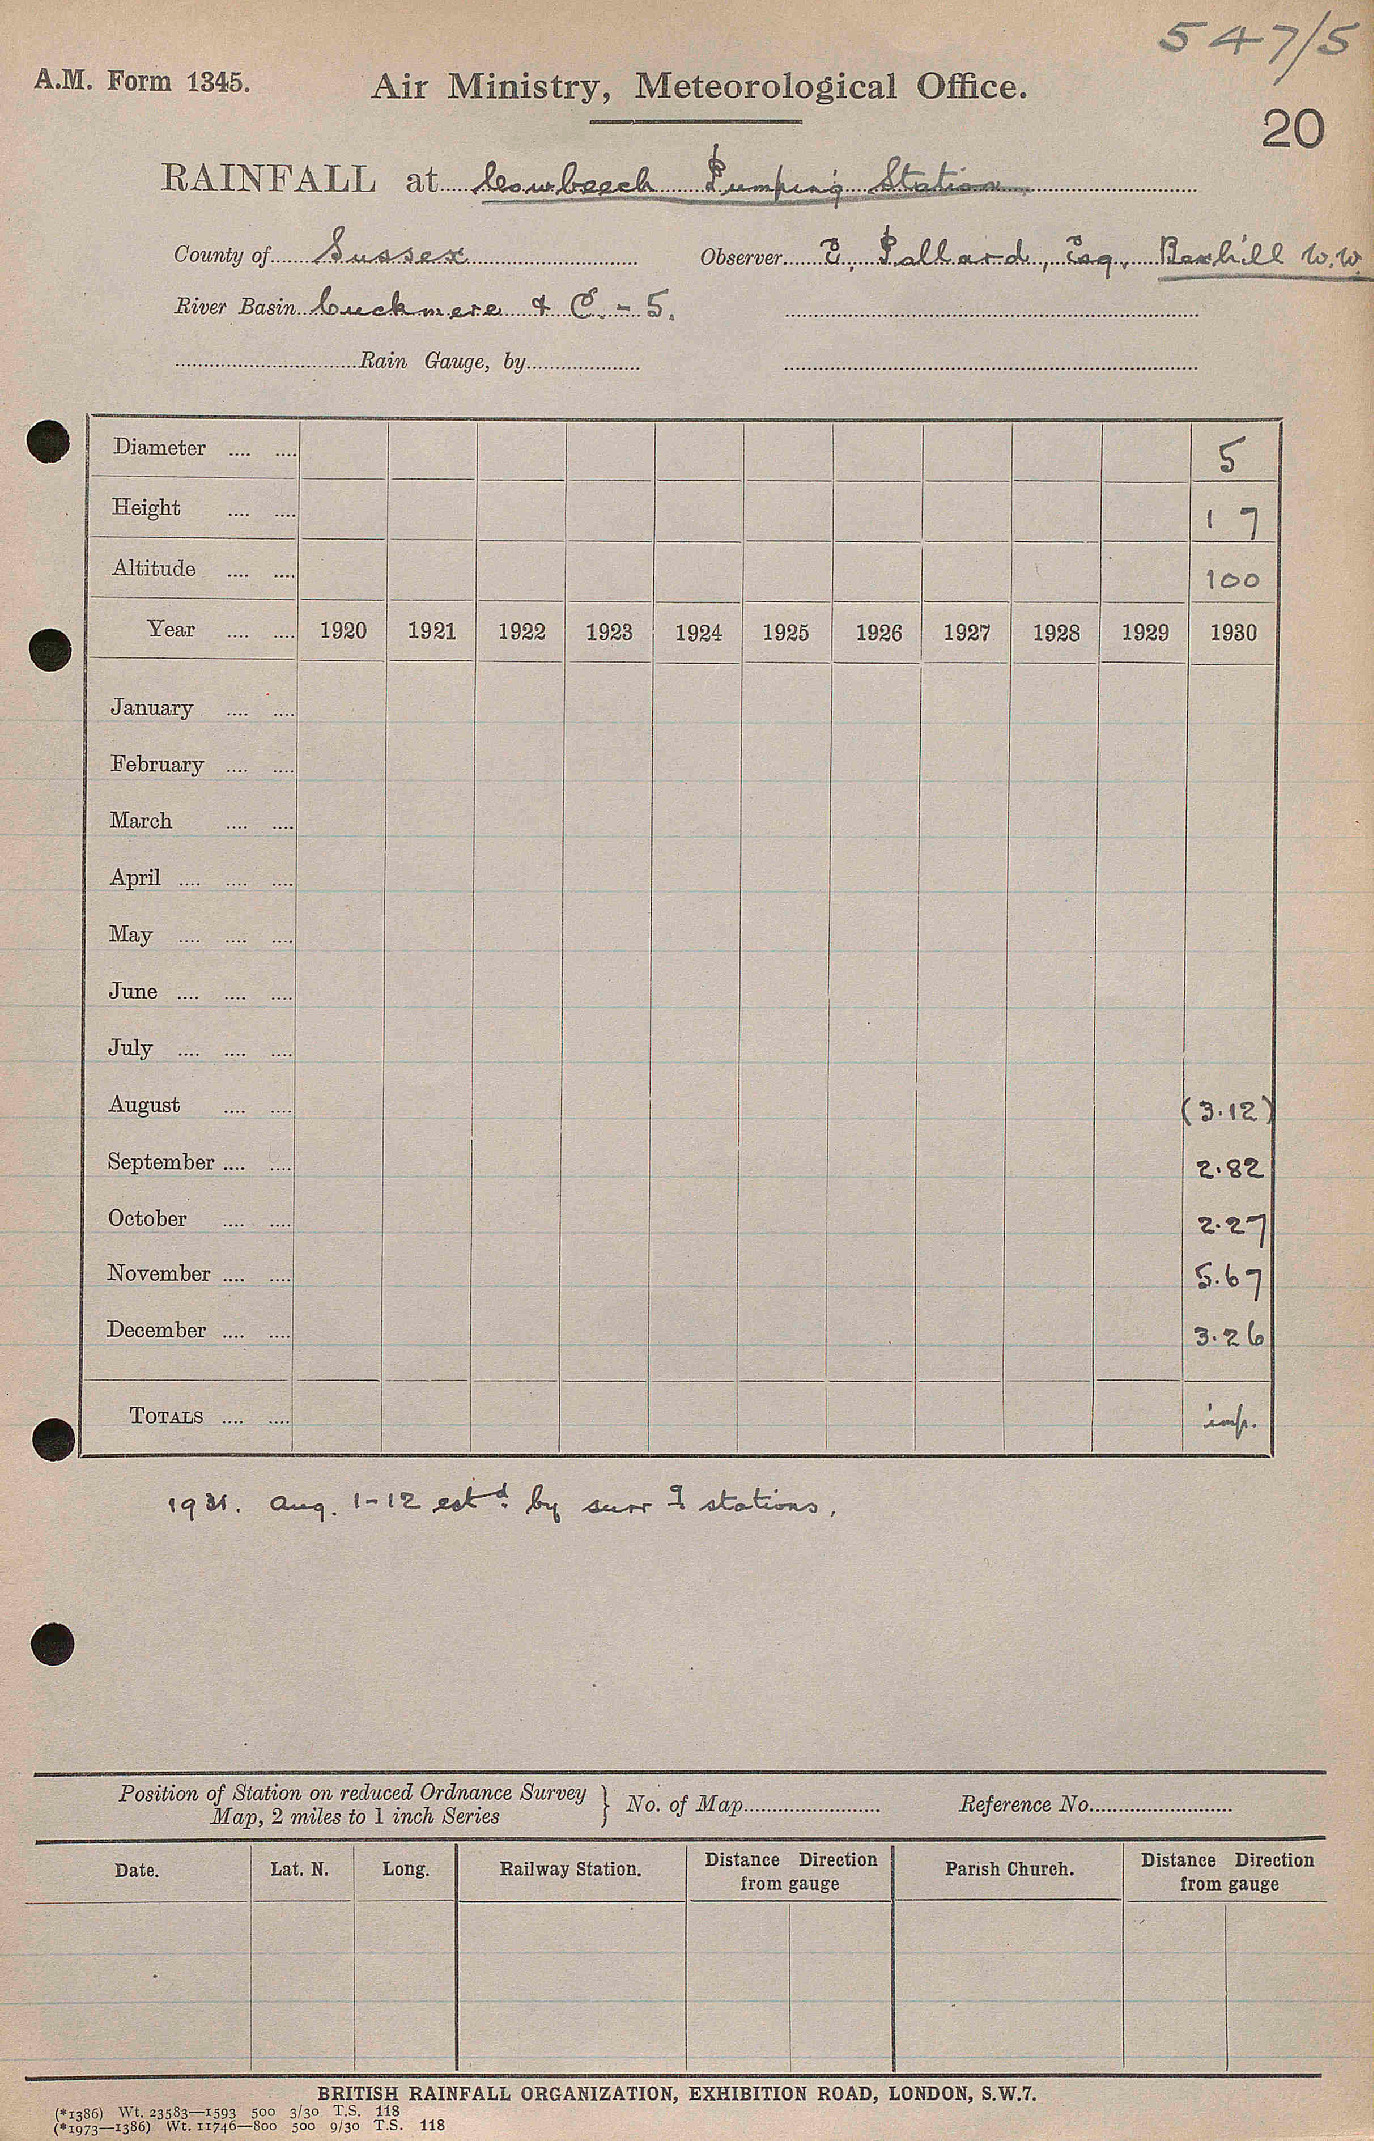 547/5
A.M. Form 1345. Air Ministry, Meteorological Office.
20
RAINFALL at Cowbeech Pumping Station.
County of Sussex Observer E. Pollard, Esq. Bexhill W.W.
River Basin Cuckmere & C. - 5.
Rain Gauge, by
Diameter .... .... 5
Height .... .... 1 7
Altitude .... .... 100
Year .... .... 1920 1921 1922 1923 1924 1925 1926 1927 1928 1929 1930
January .... ....
February .... ....
March .... ....
April .... .... ....
May .... .... ....
June .... .... ....
July .... .... ....
August .... .... (3.12)
September .... .... 2.82
October .... .... 2.27
November .... .... 5.67
December .... .... 3.26
TOTALS .... .... imp.
Aug. 1-12 estd. by surrg stations.
Position of Station on reduced Ordnance Survey
Map, 2 miles to 1 inch Series } No. of Map Reference No.
Date. Lat. N. Long. Railway Station. Distance Direction from gauge Parish Church. Distance Direction from gauge
BRITISH RAINFALL ORGANIZATION, EXHIBITION ROAD, LONDON, S.W.7.
(*1386) Wt. 23583—1593 500 3/30 T.S. 118
(*1973—1386) Wt. 11746—800 500 9/30 T.S. 118